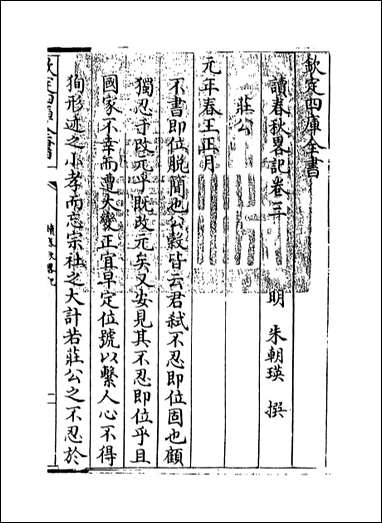 欽定四庫全書
讀春秋畧記卷三
明 朱朝瑛 撰
莊公
元年春王正月
不書即位脱簡也公穀皆云君弑不忍即位固也顧
獨忍于改元乎既改元矣又安見其不忍即位乎且
國家不幸而遭大變正宜早定位號以繫人心不得
狥形迹之小孝而忘宗社之大計若莊公之不忍於
欽定四庫全書
讀春秋畧記
一